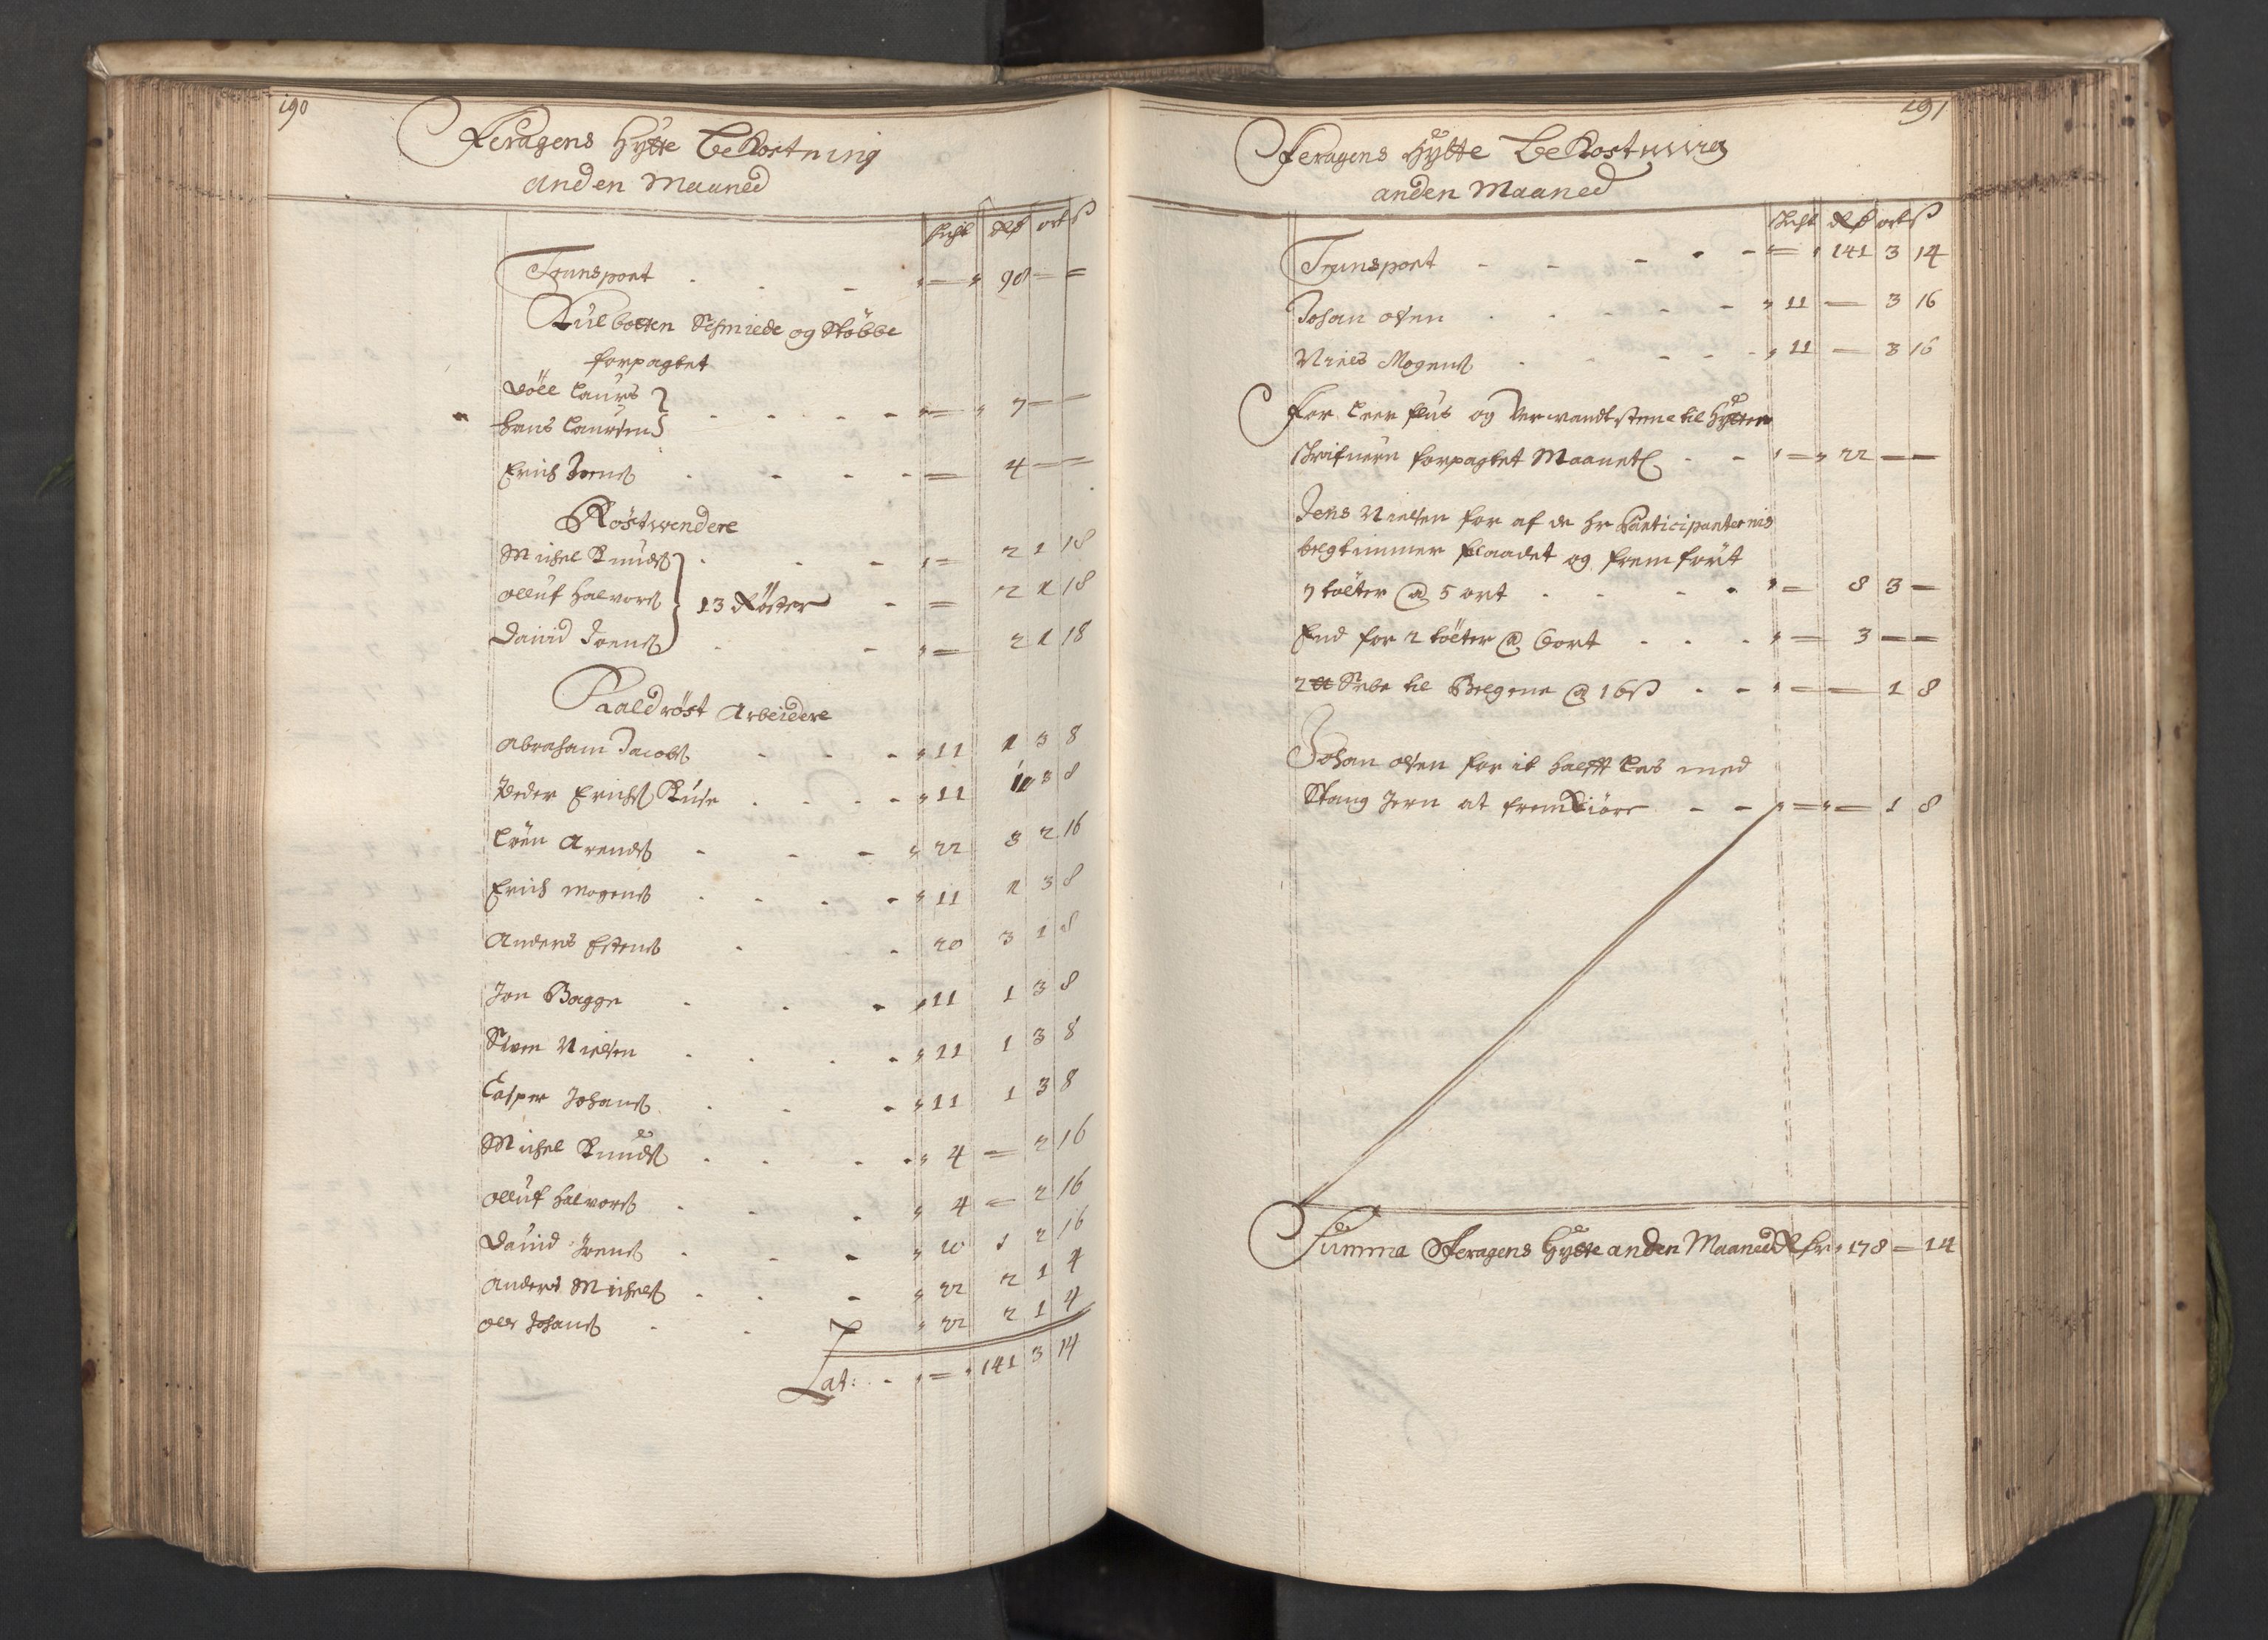 190
Feragens Hytte Bekostning
anden Maaned
skht Rdr ort ß
Transport . . - " = " 98 = =
Kulbotten Schmiede og Støbbe
forpagtet
Tøll Laurs
Hans Laursen } - - - - " = " 7 = =
Erich Joens - - - = 4 = =
Røstwendere
Michel Knuds . - - " = 2 1 18
Olluf Halvors } 13 Røster - = 2 1 18
David Joens . - " = 2 1 18
Kaldrøst Arbeidere
Abraham Jacobs - - - " 11 1 3 8
Peder Erichs Kuse . - - - " 11 1 3 8
Løen Arends - - - " 22 3 2 16
Erich Mogens . - - - " 11 1 3 8
Anders Estens . - 20 3 1 8
Jon Bagge . . - " 11 1 3 8
Swen Nielsen . . . - " 11 1 3 8
Casper Johans . - - " 11 1 3 8
Michel Knuds . . - - " 4 = 2 16
Olluf Halvors . . - " 4 = 2 16
David Joens . - - " 10 1 2 16
Anders Michels . . - " 22 2 1 4
Ole Johans . . " 22 2 1 4
Lat: - " = " 141 3 14
191
Feragens Hytte Bekostning
anden Maaned
skht Rdr ort ß
Transport - - - - - = " 141 3 14
Johan Olsen . . - - - " 11 = 3 16
Niels Mogens . . - - - " 11 = 3 16
For Leer flus og Verwandtstene til Hytten
skrifueren forpagtet Maanetl - - " = " 22 = =
Jens Nielsen for af de Hr Participanternis
belgtimmer flaadet og fremført
7 tølter @ 5 ort . . - - " = 8 3 =
End for 2 tølter @ 6 ort . . . " = 3 = =
2 lb Sebe til Belgene @ 16 ß . - " = = 1 8
Johan Olsen for it halfft Les med
Stang Jern at fremkiøre - - " = " = 1 8
Summa Feragens Hytte anden Maaned Rdr " 178 = 14